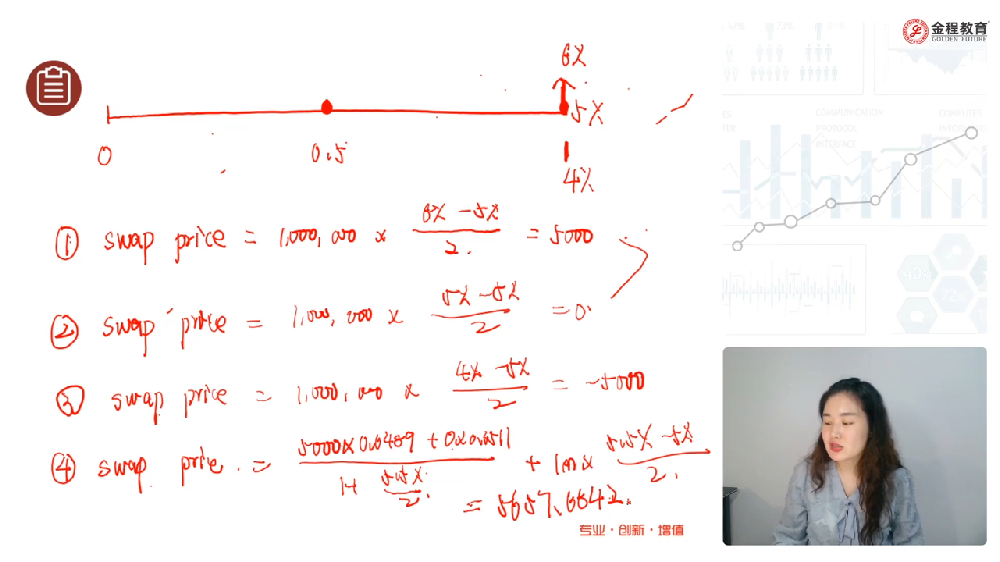 金程教育
GOLDEN FUTURE
6%
5%
0
0.5
4%
① swap price = 1,000,000 × (6% - 5%) / 2 = 5000
② swap price = 1,000,000 × (5% - 5%) / 2 = 0
③ swap price = 1,000,000 × (4% - 5%) / 2 = -5000
④ swap price = (5000 × 0.6489 + 0 × 0.3511) / (1 + 5.5% / 2) + 1m × (5.5% - 5%) / 2
= 5657.6642
专业·创新·增值
COMMUNICATION
PROTOCOL
INTERFACE